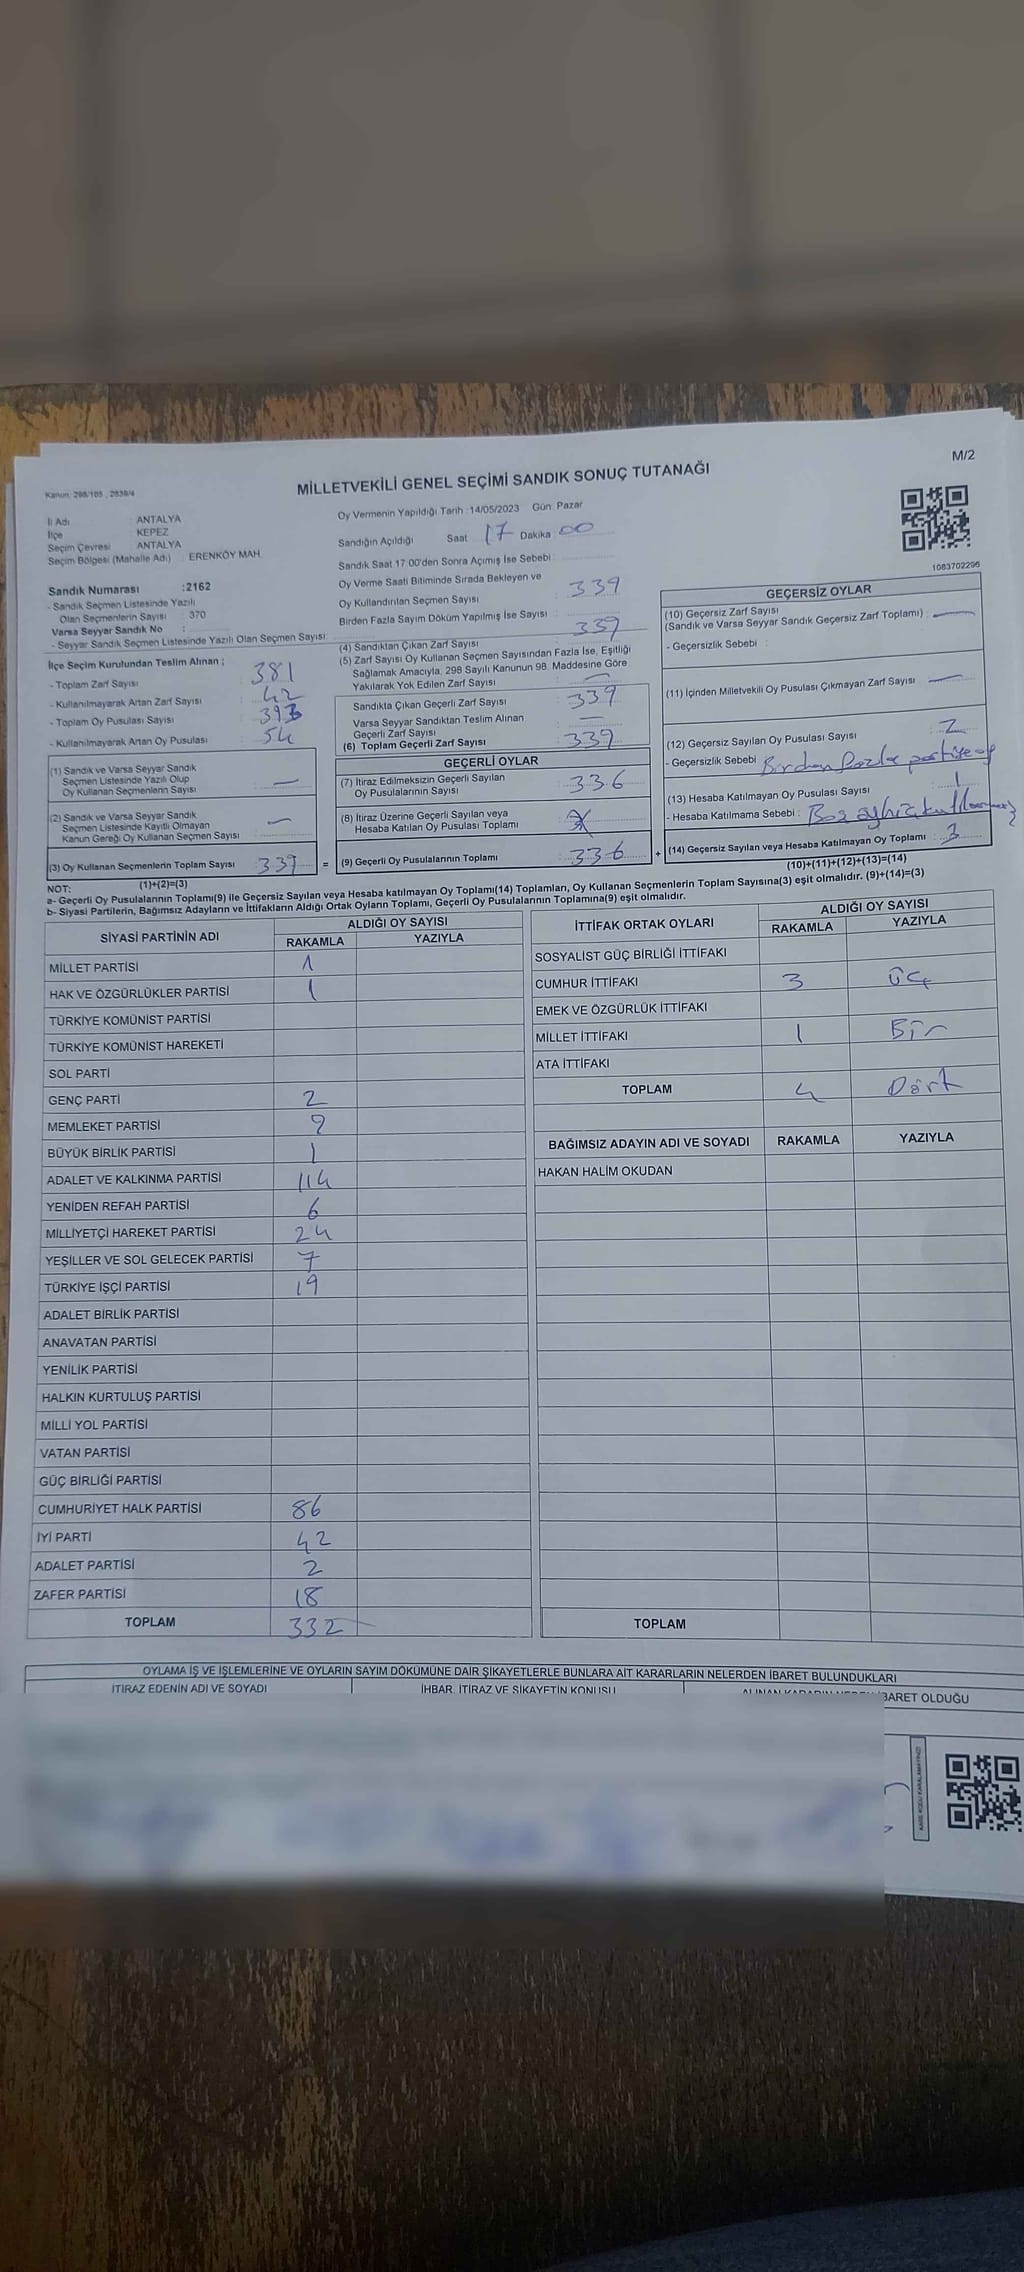 M/2
Kanun, 298/105 , 2839/4
MİLLETVEKİLİ GENEL SEÇİMİ SANDIK SONUÇ TUTANAĞI
İl Adı : ANTALYA
İlçe : KEPEZ
Seçim Çevresi : ANTALYA
Seçim Bölgesi (Mahalle Adı) : ERENKÖY MAH.
Sandık Numarası :2162
- Sandık Seçmen Listesinde Yazılı
Olan Seçmenlerin Sayısı : 370
Varsa Seyyar Sandık No :
- Seyyar Sandık Seçmen Listesinde Yazılı Olan Seçmen Sayısı:
İlçe Seçim Kurulundan Teslim Alınan ;
- Toplam Zarf Sayısı : 381
- Kullanılmayarak Artan Zarf Sayısı : 42
- Toplam Oy Pusulası Sayısı : 393
- Kullanılmayarak Artan Oy Pusulası : 54
(1) Sandık ve Varsa Seyyar Sandık
Seçmen Listesinde Yazılı Olup
Oy Kullanan Seçmenlerin Sayısı : —
(2) Sandık ve Varsa Seyyar Sandık
Seçmen Listesinde Kayıtlı Olmayan
Kanun Gereği Oy Kullanan Seçmen Sayısı : —
(3) Oy Kullanan Seçmenlerin Toplam Sayısı : 339 =
(1)+(2)=(3)
Oy Vermenin Yapıldığı Tarih :14/05/2023 Gün: Pazar
Sandığın Açıldığı Saat 17 Dakika 00
Sandık Saat 17:00'den Sonra Açımış İse Sebebi :
Oy Verme Saati Bitiminde Sırada Bekleyen ve
Oy Kullandırılan Seçmen Sayısı : 339
Birden Fazla Sayım Döküm Yapılmış İse Sayısı :
(4) Sandıktan Çıkan Zarf Sayısı : 339
(5) Zarf Sayısı Oy Kullanan Seçmen Sayısından Fazla İse, Eşitliği
Sağlamak Amacıyla, 298 Sayılı Kanunun 98. Maddesine Göre
Yakılarak Yok Edilen Zarf Sayısı : —
Sandıkta Çıkan Geçerli Zarf Sayısı : 339
Varsa Seyyar Sandıktan Teslim Alınan
Geçerli Zarf Sayısı : —
(6) Toplam Geçerli Zarf Sayısı : 339
GEÇERLİ OYLAR
(7) İtiraz Edilmeksizin Geçerli Sayılan
Oy Pusulalarının Sayısı : 336
(8) İtiraz Üzerine Geçerli Sayılan veya
Hesaba Katılan Oy Pusulası Toplamı :
(9) Geçerli Oy Pusulalarının Toplamı : 336 +
1083702296
GEÇERSİZ OYLAR
(10) Geçersiz Zarf Sayısı
(Sandık ve Varsa Seyyar Sandık Geçersiz Zarf Toplamı) : —
- Geçersizlik Sebebi :
(11) İçinden Milletvekili Oy Pusulası Çıkmayan Zarf Sayısı : —
(12) Geçersiz Sayılan Oy Pusulası Sayısı : 2
- Geçersizlik Sebebi : Birden fazla partiye oy
(13) Hesaba Katılmayan Oy Pusulası Sayısı : 1
- Hesaba Katılmama Sebebi :
(14) Geçersiz Sayılan veya Hesaba Katılmayan Oy Toplamı : 3
(10)+(11)+(12)+(13)=(14)
NOT:
a- Geçerli Oy Pusulalarının Toplamı(9) ile Geçersiz Sayılan veya Hesaba katılmayan Oy Toplamı(14) Toplamları, Oy Kullanan Seçmenlerin Toplam Sayısına(3) eşit olmalıdır. (9)+(14)=(3)
b- Siyasi Partilerin, Bağımsız Adayların ve İttifakların Aldığı Ortak Oyların Toplamı, Geçerli Oy Pusulalarının Toplamına(9) eşit olmalıdır.
SİYASİ PARTİNİN ADI ALDIĞI OY SAYISI
RAKAMLA YAZIYLA
MİLLET PARTİSİ 1
HAK VE ÖZGÜRLÜKLER PARTİSİ 1
TÜRKİYE KOMÜNİST PARTİSİ
TÜRKİYE KOMÜNİST HAREKETİ
SOL PARTİ
GENÇ PARTİ 2
MEMLEKET PARTİSİ 9
BÜYÜK BİRLİK PARTİSİ 1
ADALET VE KALKINMA PARTİSİ 114
YENİDEN REFAH PARTİSİ 6
MİLLİYETÇİ HAREKET PARTİSİ 24
YEŞİLLER VE SOL GELECEK PARTİSİ 7
TÜRKİYE İŞÇİ PARTİSİ 19
ADALET BİRLİK PARTİSİ
ANAVATAN PARTİSİ
YENİLİK PARTİSİ
HALKIN KURTULUŞ PARTİSİ
MİLLİ YOL PARTİSİ
VATAN PARTİSİ
GÜÇ BİRLİĞİ PARTİSİ
CUMHURİYET HALK PARTİSİ 86
İYİ PARTİ 42
ADALET PARTİSİ 2
ZAFER PARTİSİ 18
TOPLAM 332
İTTİFAK ORTAK OYLARI ALDIĞI OY SAYISI
RAKAMLA YAZIYLA
SOSYALİST GÜÇ BİRLİĞİ İTTİFAKI
CUMHUR İTTİFAKI 3 üç
EMEK VE ÖZGÜRLÜK İTTİFAKI
MİLLET İTTİFAKI 1 Bir
ATA İTTİFAKI
TOPLAM 4 Dört
BAĞIMSIZ ADAYIN ADI VE SOYADI RAKAMLA YAZIYLA
HAKAN HALİM OKUDAN
TOPLAM
OYLAMA İŞ VE İŞLEMLERİNE VE OYLARIN SAYIM DÖKÜMÜNE DAİR ŞİKAYETLERLE BUNLARA AİT KARARLARIN NELERDEN İBARET BULUNDUKLARI
İTİRAZ EDENİN ADI VE SOYADI İHBAR, İTİRAZ VE ŞİKAYETİN KONUSU ALINAN KARARIN NEDEN İBARET OLDUĞU
KARE KODU KARALAMAYINIZ!